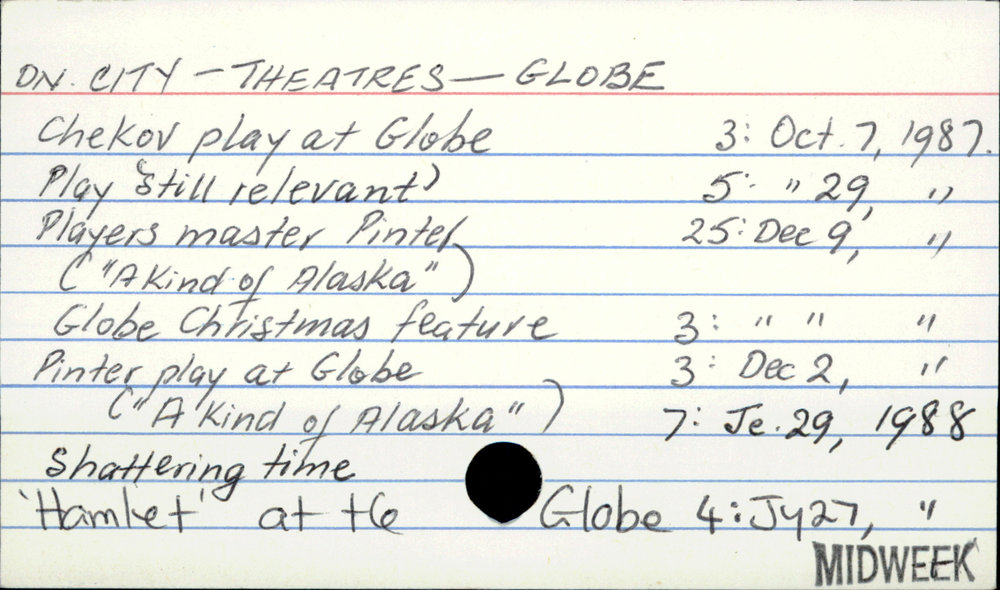 DN. CITY — THEATRES — GLOBE
Chekov play at Globe 3: Oct. 7, 1987.
Play 'still relevant' 5: " 29, "
Players master Pinter 25: Dec 9, "
("A Kind of Alaska")
Globe Christmas feature 3: " " "
Pinter play at Globe 3: Dec 2, "
("A Kind of Alaska") 7: Je. 29, 1988
Shattering time
'Hamlet' at the Globe 4: Jy 27, "
MIDWEEK